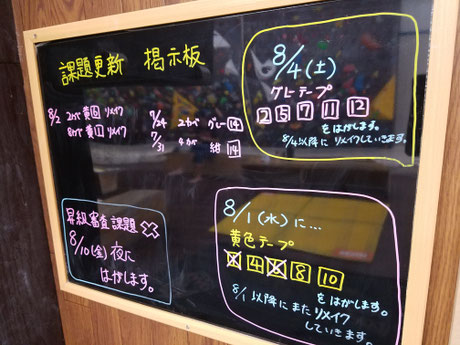 課題更新 掲示板
8/2 2カベ 黄⑥ リメイク
8カベ 黄① リメイク
7/24 2カベ グレー 14
7/31 4カベ 紺 14
8/4(土)
グレーテープ
2 5 7 11 12
をはがします。
8/4以降に リメイクしていきます。
昇級審査課題
8/10(金)夜に
はがします。
8/1(水)に…
黄色テープ
4 8 10
をはがします。
8/1以降にまたリメイク
していきます。